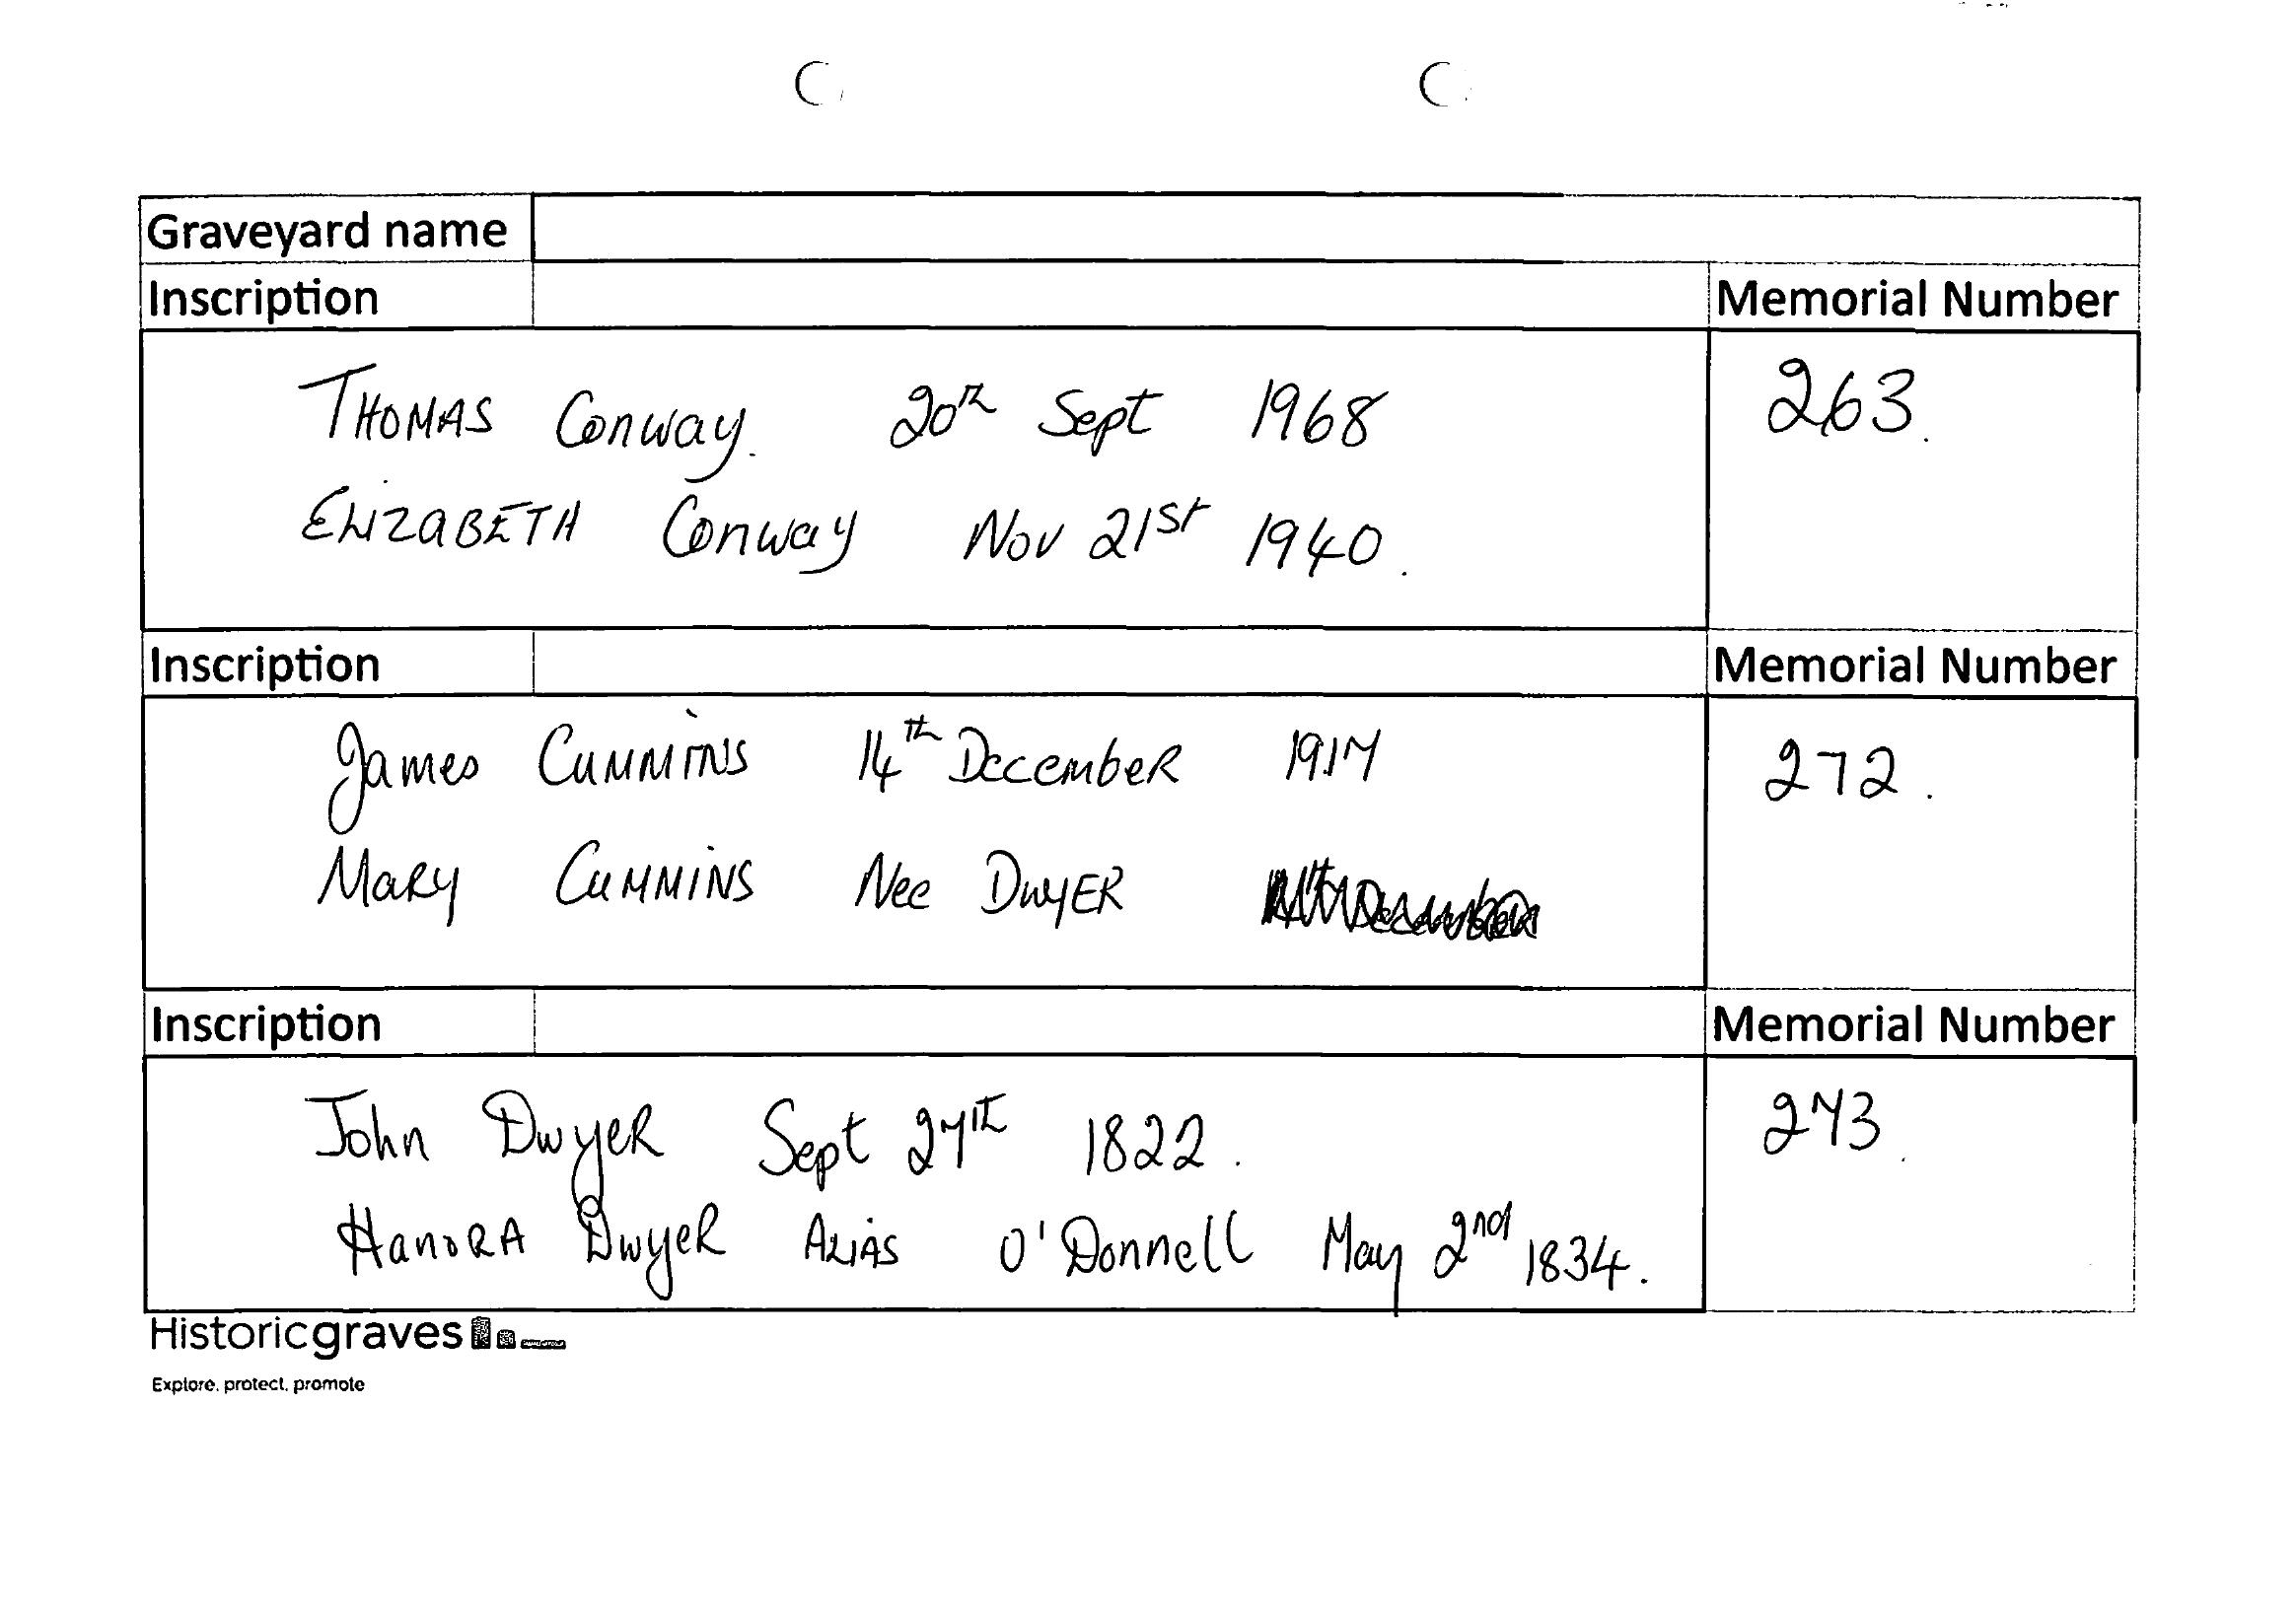 Graveyard name
Inscription Memorial Number
THOMAS Conway. 20th Sept 1968 263.
ELIZABETH Conway Nov 21st 1940.
Inscription Memorial Number
James CUMMINS 14th December 1917 272.
MARY CUMMINS Nee DWYER
Inscription Memorial Number
John DwyeR Sept 27th 1822. 273.
HanoRA DwyeR ALIAS O'Donnell May 2nd 1834.
Historicgraves
Explore. protect. promote